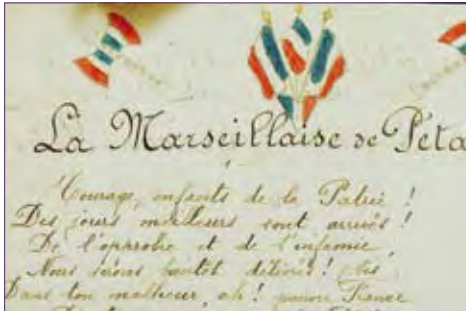 La Marseillaise de Péta
Courage, enfants de la Patrie !
Des jours meilleurs sont arrivés !
De l'opprobre et de l'infamie,
Nous serons bientôt délivrés ! bis
Dans ton malheur, oh ! pauvre France